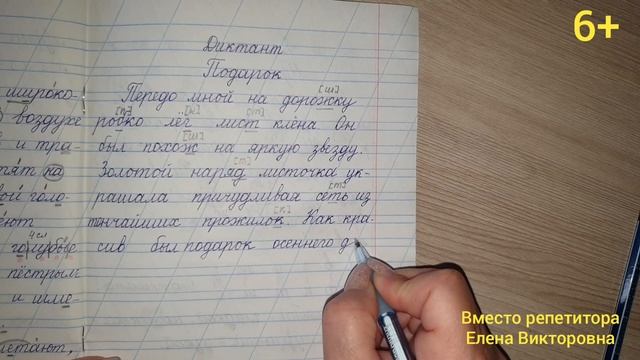 6+
Диктант
Подарок
Передо мной на дорожку
[ш]
робко лёг лист клёна Он
был похож на яркую звезду.
[ш]
Золотой наряд листочка ук-
[т]
рашала причудливая сеть из
тончайших прожилок. Как кра-
сив был подарок осеннего д
широко-
воздухе
и тра-
тят на
вой голо-
ют
4 сл
голубые
пёстрым
и шме-
летают,
Вместо репетитора
Елена Викторовна